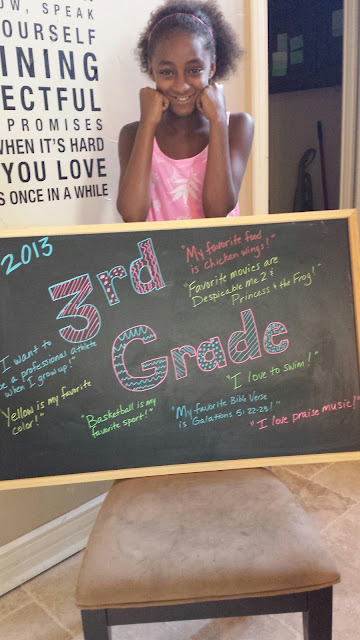 OW, SPEAK
OURSELF
INING
ECTFUL
PROMISES
WHEN IT'S HARD
YOU LOVE
S ONCE IN A WHILE
2013
3rd
Grade
"My favorite food
is Chicken wings!"
"Favorite movies are
Despicable Me 2 &
Princess & the Frog!"
I want to
be a professional athlete
when I grow up!"
"I love to swim!"
Yellow is my favorite
color!"
"Basketball is my
favorite sport!"
"My favorite Bible Verse
is Galations 5:22-23!"
"I love praise music!"